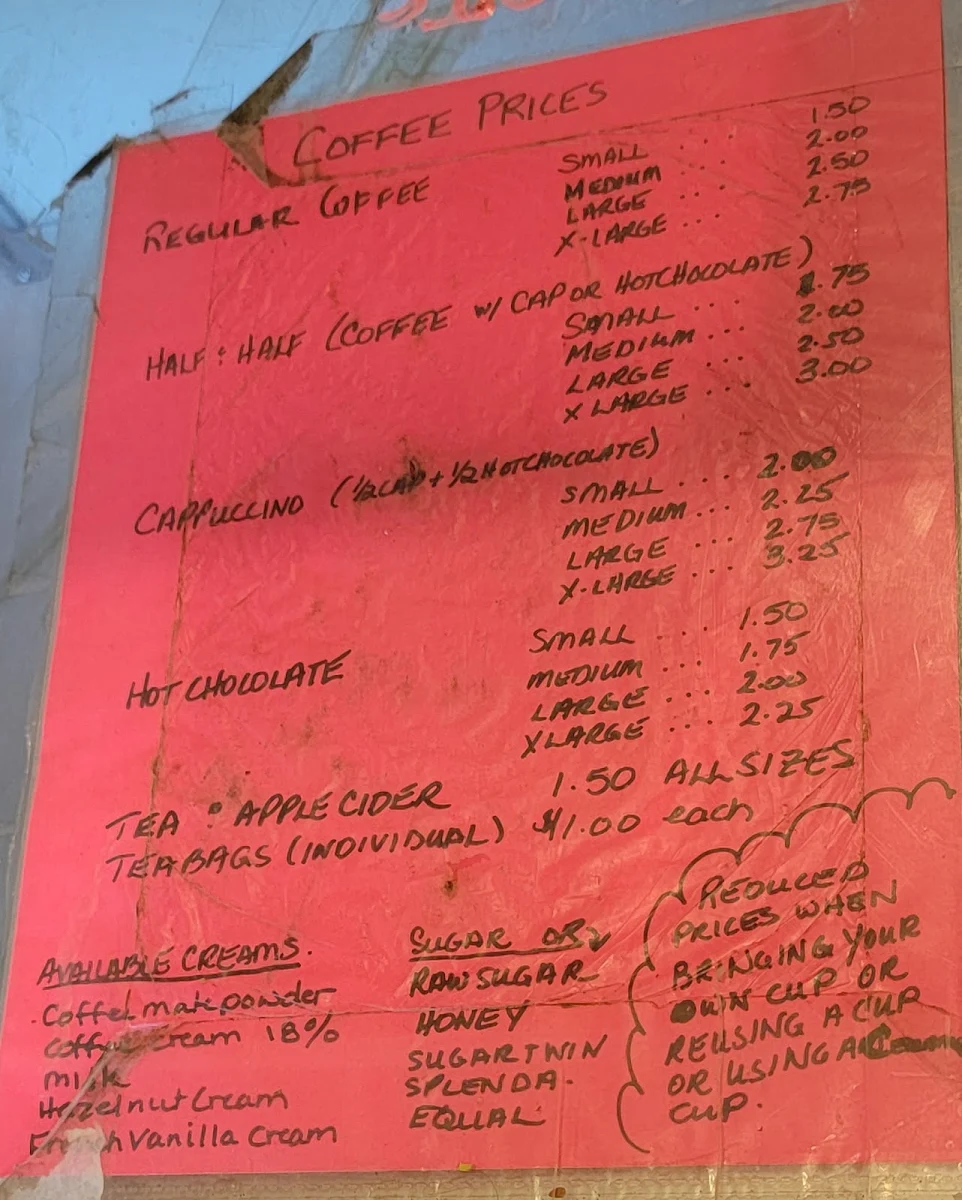 COFFEE PRICES
REGULAR COFFEE SMALL ... 1.50
MEDIUM ... 2.00
LARGE ... 2.50
X-LARGE ... 2.75
HALF & HALF (COFFEE W/ CAP OR HOTCHOCOLATE)
SMALL ... .75
MEDIUM ... 2.00
LARGE ... 2.50
X LARGE ... 3.00
CAPPUCCINO (1/2 CAP + 1/2 HOTCHOCOLATE)
SMALL ... 2.00
MEDIUM ... 2.25
LARGE ... 2.75
X-LARGE ... 3.25
HOT CHOCOLATE SMALL ... 1.50
MEDIUM ... 1.75
LARGE ... 2.00
XLARGE ... 2.25
TEA & APPLE CIDER 1.50 ALL SIZES
TEABAGS (INDIVIDUAL) $1.00 each
AVAILABLE CREAMS.
Coffee mate powder
Coffee Cream 18%
milk
Hazelnut Cream
French Vanilla Cream
SUGAR OR
RAW SUGAR
HONEY
SUGAR TWIN
SPLENDA.
EQUAL
REDUCED
PRICES WHEN
BRINGING YOUR
OWN CUP OR
REUSING A CUP
OR USING A
CUP.